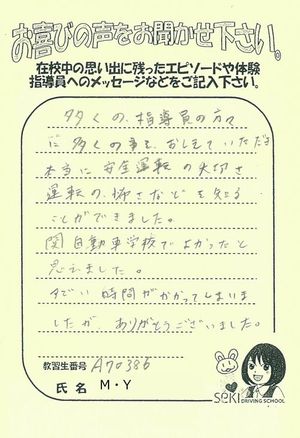 お喜びの声をお聞かせ下さい。
在校中の思い出に残ったエピソードや体験
指導員へのメッセージなどをご記入下さい。
多くの、指導員の方々
に多くの事を、おしえていただき
本当に安全運転の大切さ
運転の、怖さなどを知る
ことができました。
関自動車学校でよかったと
思えました。
すごい時間がかかってしまいま
したが、ありがとうございました。
教習生番号 A70386
氏名 M・Y
SEKI
DRIVING SCHOOL